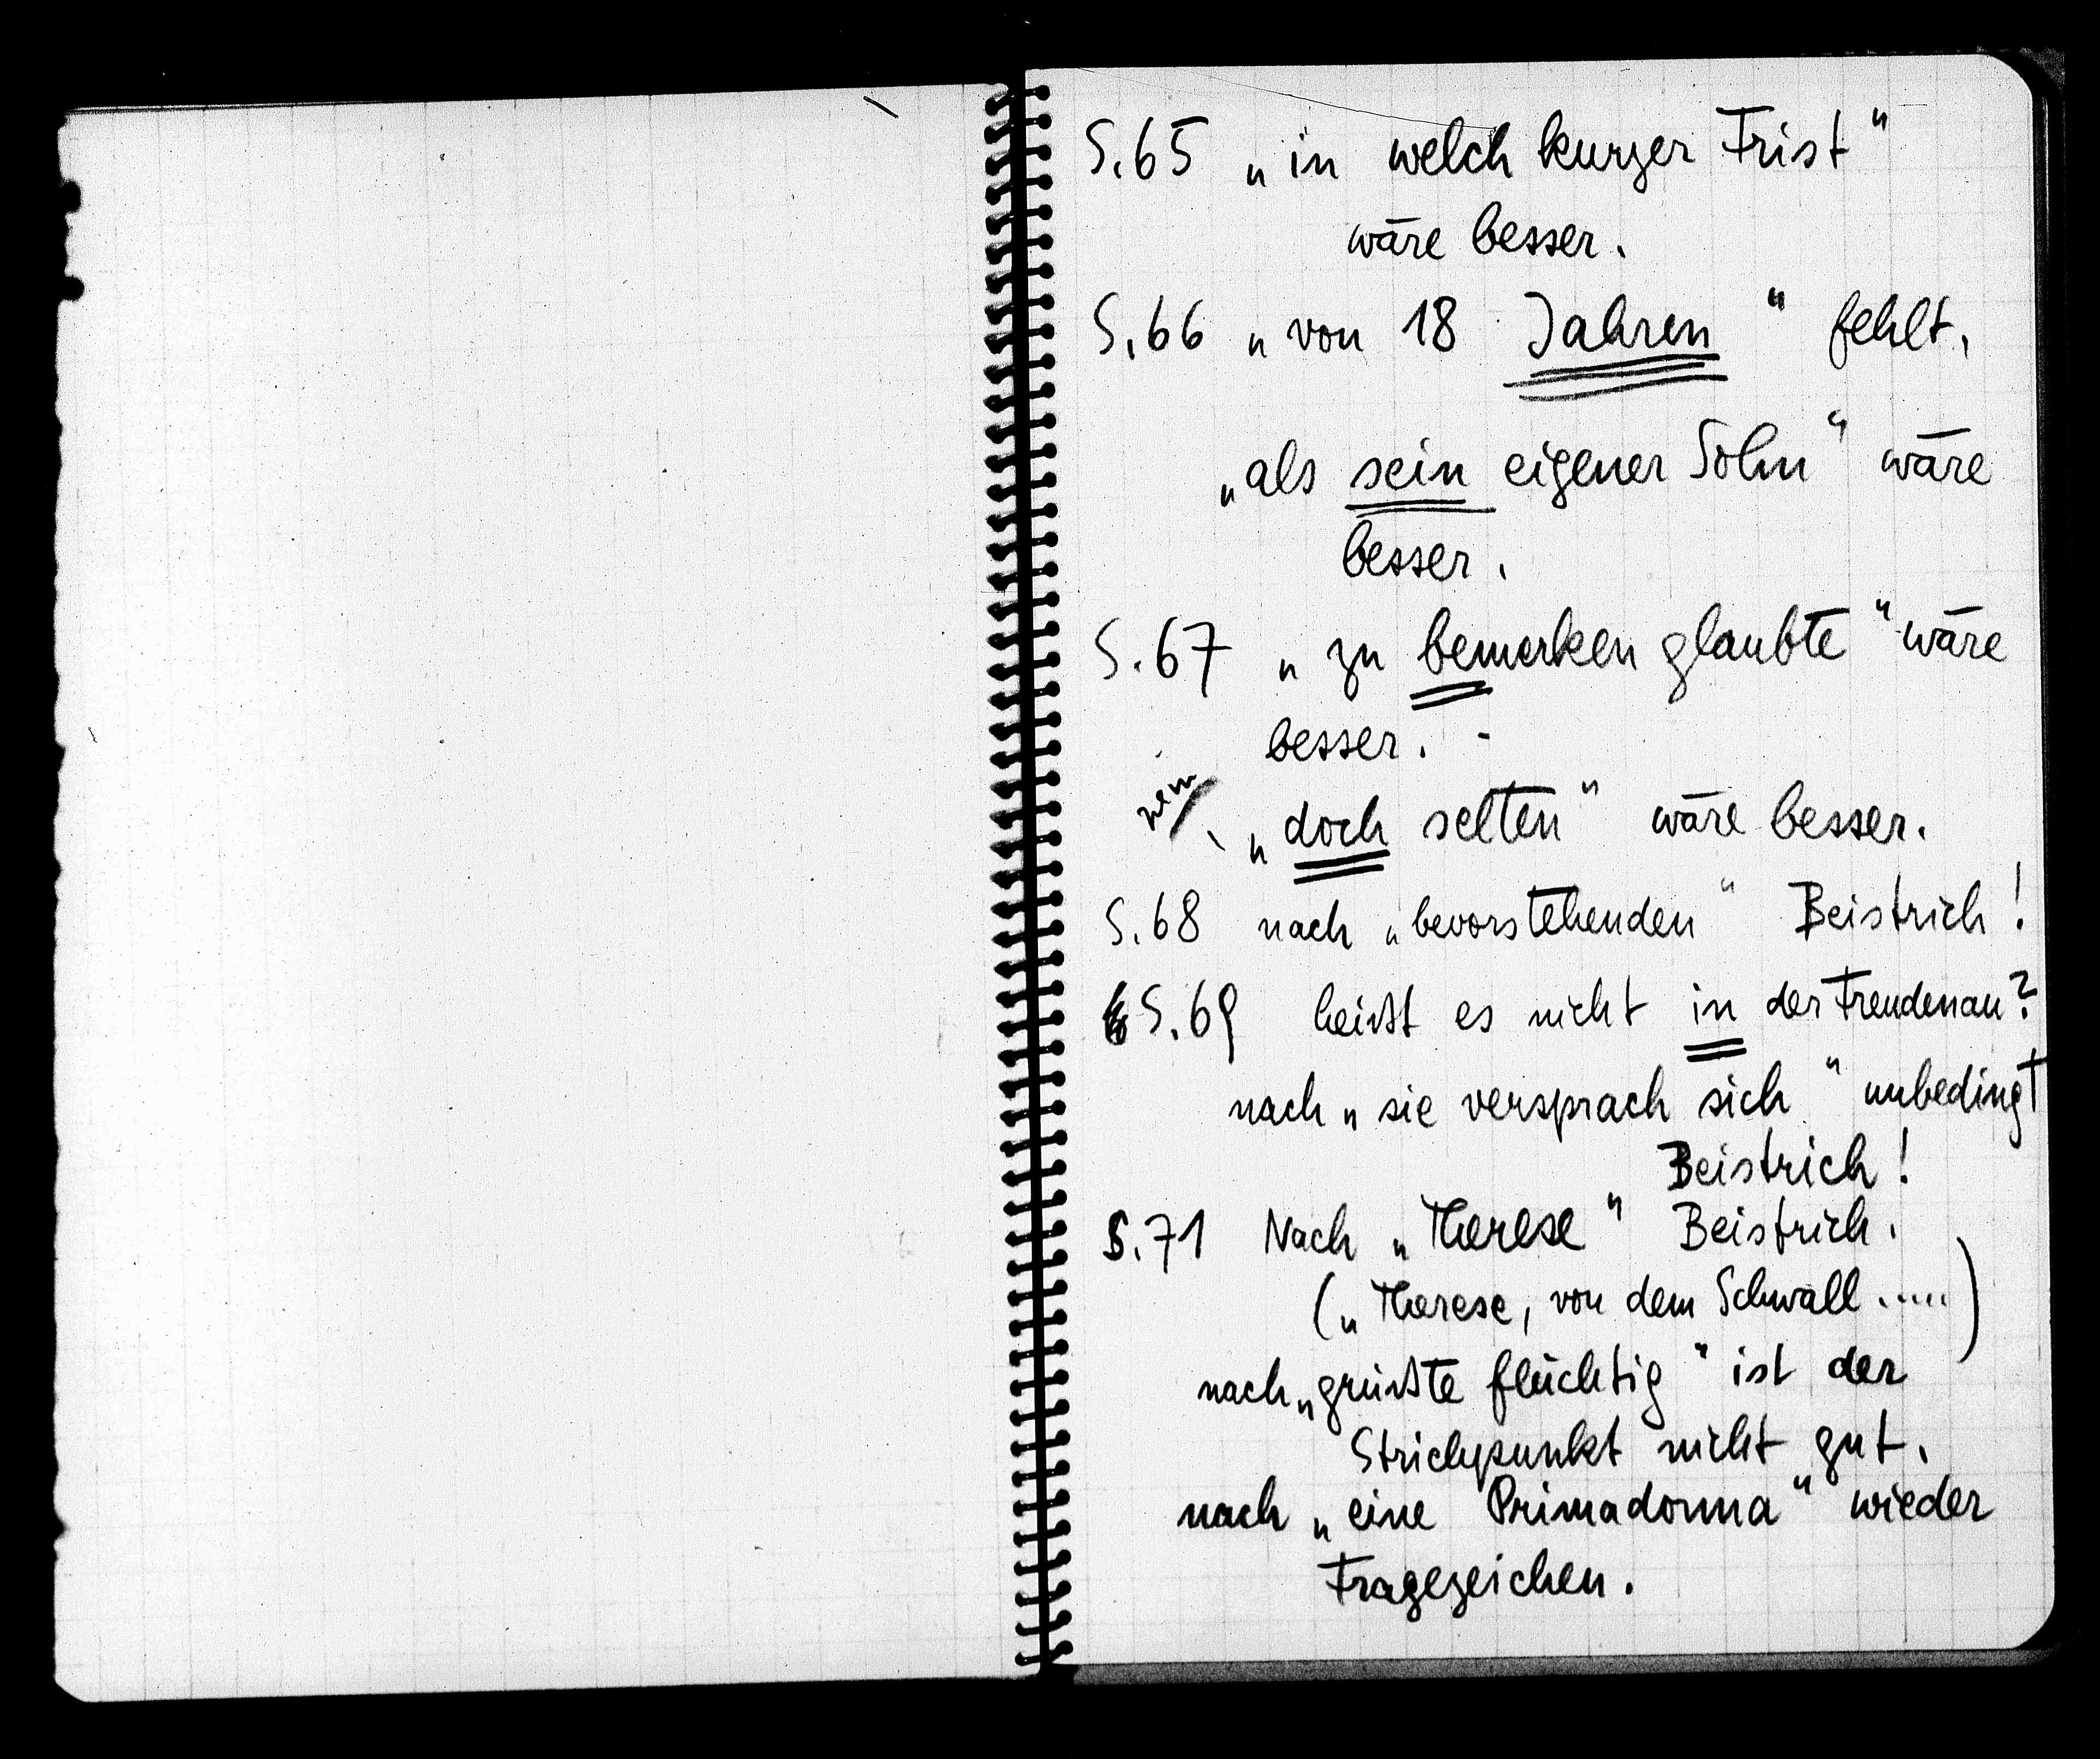 S.65 „in welch kurzer Frist"
wäre besser.
S.66 „von 18 Jahren" fehlt.
„als sein eigener Sohn" wäre
besser.
S.67 „zu bemerken glaubte" wäre
besser. -
nein
„doch selten" wäre besser.
S.68 nach „bevorstehenden" Beistrich!
S.69 heißt es nicht in der Freudenau?
nach „sie versprach sich" unbedingt
Beistrich!
S.71 Nach „Therese" Beistrich.
(„Therese, von dem Schwall.....)
nach „grüßte flüchtig" ist der
Strichpunkt nicht gut.
nach „eine Primadonna" wieder
Fragezeichen.